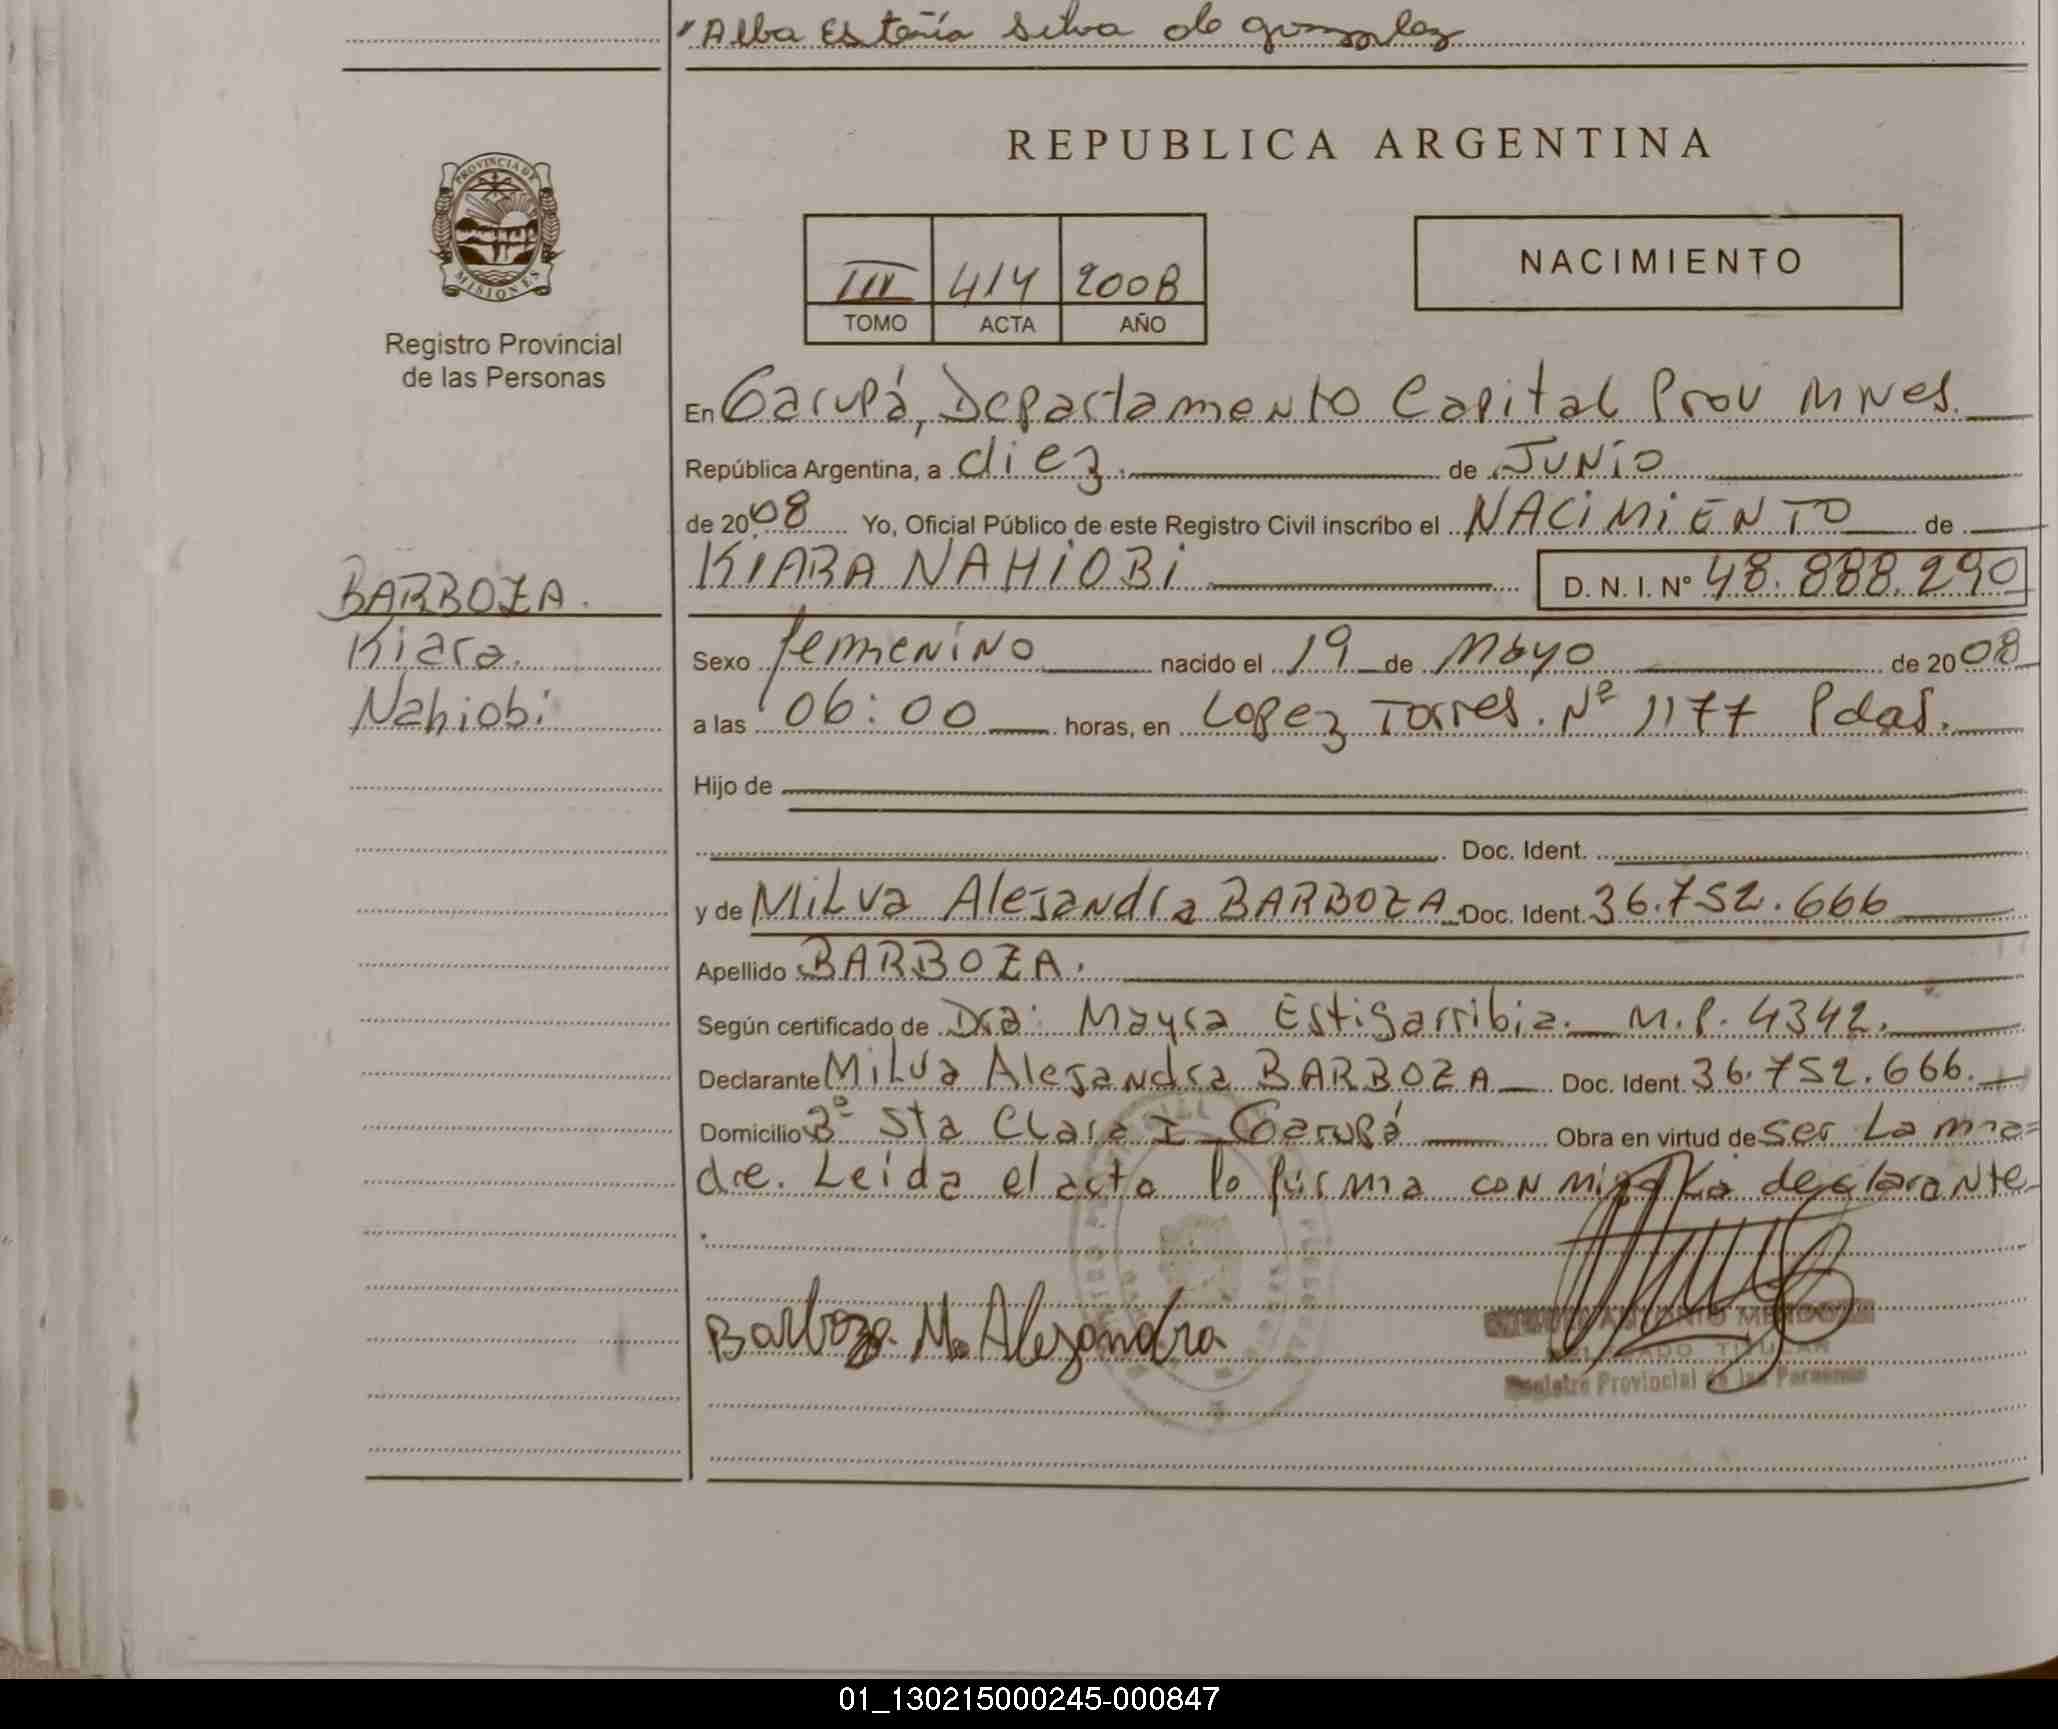 Alba Estefania Silva de Gonzalez
REPUBLICA ARGENTINA
PROVINCIA DE
MISIONES
Registro Provincial
de las Personas
III 414 2008
TOMO ACTA AÑO
NACIMIENTO
En Garupá, Departamento Capital Prov Mnes.
República Argentina, a diez. de Junio
de 2008 Yo, Oficial Público de este Registro Civil inscribo el NACIMIENTO de
KIARA NAHIOBI D. N. I. Nº 48.888.290
BARBOZA.
Kiara.
Nahiobi
Sexo femenino nacido el 19 de Mayo de 2008
a las 06:00 horas, en Lopez Torres. Nº 1177 Pdas.
Hijo de
Doc. Ident.
y de Milva Alejandra BARBOZA Doc. Ident. 36.752.666
Apellido BARBOZA.
Según certificado de Dra: Mayra Estigarribia. M.P. 4342.
Declarante Milva Alejandra BARBOZA Doc. Ident. 36.752.666.
Domicilio Bº Sta Clara I Garupá Obra en virtud de ser La ma=
dre. Leida el acta la firma conmigo La declarante
Barboza M. Alejandra
TITULAR
Registro Provincial de las Personas
01_130215000245-000847